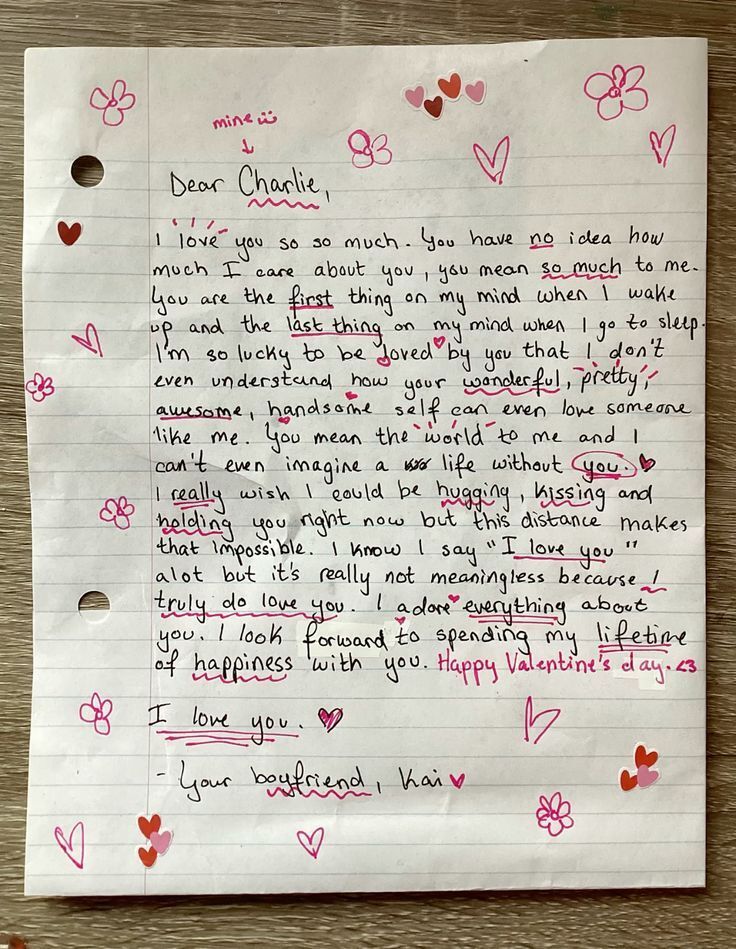 mine ü
↓
Dear Charlie,
I love you so so much. You have no idea how
much I care about you, you mean so much to me.
You are the first thing on my mind when I wake
up and the last thing on my mind when I go to sleep.
I'm so lucky to be loved by you that I don't
even understand how your wonderful, pretty,
awesome, handsome self can even love someone
like me. You mean the world to me and I
can't even imagine a life without you. ♥
I really wish I could be hugging, kissing and
holding you right now but this distance makes
that impossible. I know I say "I love you"
alot but it's really not meaningless because I
truly do love you. I adore everything about
you. I look forward to spending my lifetime
of happiness with you. Happy Valentine's day. <3
I love you. ♥
- Your boyfriend, Kai ♥